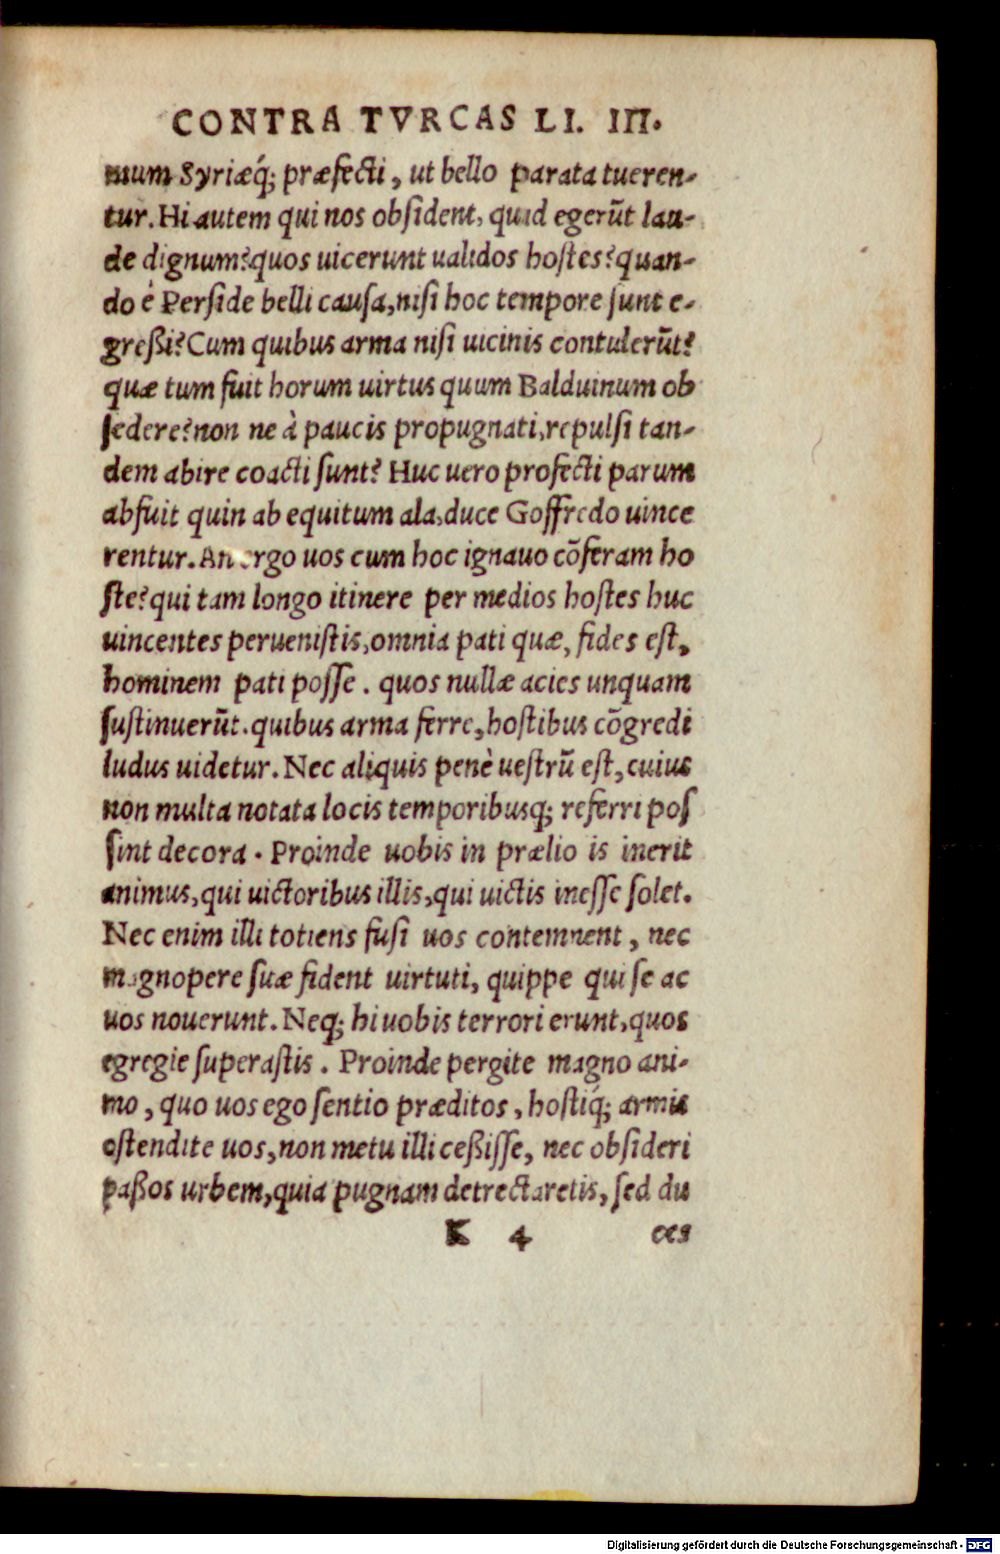 CONTRA TVRCAS LI. III.
mum Syriæq́; præfecti, ut bello parata tueren-
tur. Hi autem qui nos obsident, quid egerũt lau-
de dignum? quos uicerunt ualidos hostes? quan-
do è Perside belli causa, nisi hoc tempore sunt e-
greßi? Cum quibus arma nisi uicinis contulerũt?
quæ tum fuit horum uirtus quum Balduinum ob
sedere? non ne à paucis propugnati, repulsi tan-
dem abire coacti sunt? Huc uero profecti parum
abfuit quin ab equitum ala, duce Goffredo uince
rentur. An ergo uos cum hoc ignauo cõferam ho
ste? qui tam longo itinere per medios hostes huc
uincentes peruenistis, omnia pati quæ, fides est,
hominem pati posse. quos nullæ acies unquam
sustinuerũt. quibus arma ferre, hostibus cõgredi
ludus uidetur. Nec aliquis penè uestrũ est, cuius
non multa notata locis temporibusq; referri pos
sint decora. Proinde uobis in prælio is inerit
animus, qui uictoribus illis, qui uictis inesse solet.
Nec enim illi totiens fusi uos contemnent, nec
magnopere suæ fident uirtuti, quippe qui se ac
uos nouerunt. Neq; hi uobis terrori erunt, quos
egregie superastis. Proinde pergite magno ani-
mo, quo uos ego sentio præditos, hostiq́; armis
ostendite uos, non metu illi ceßisse, nec obsideri
paßos urbem, quia pugnam detrectaretis, sed du
K 4 ces
Digitalisierung gefördert durch die Deutsche Forschungsgemeinschaft - DFG